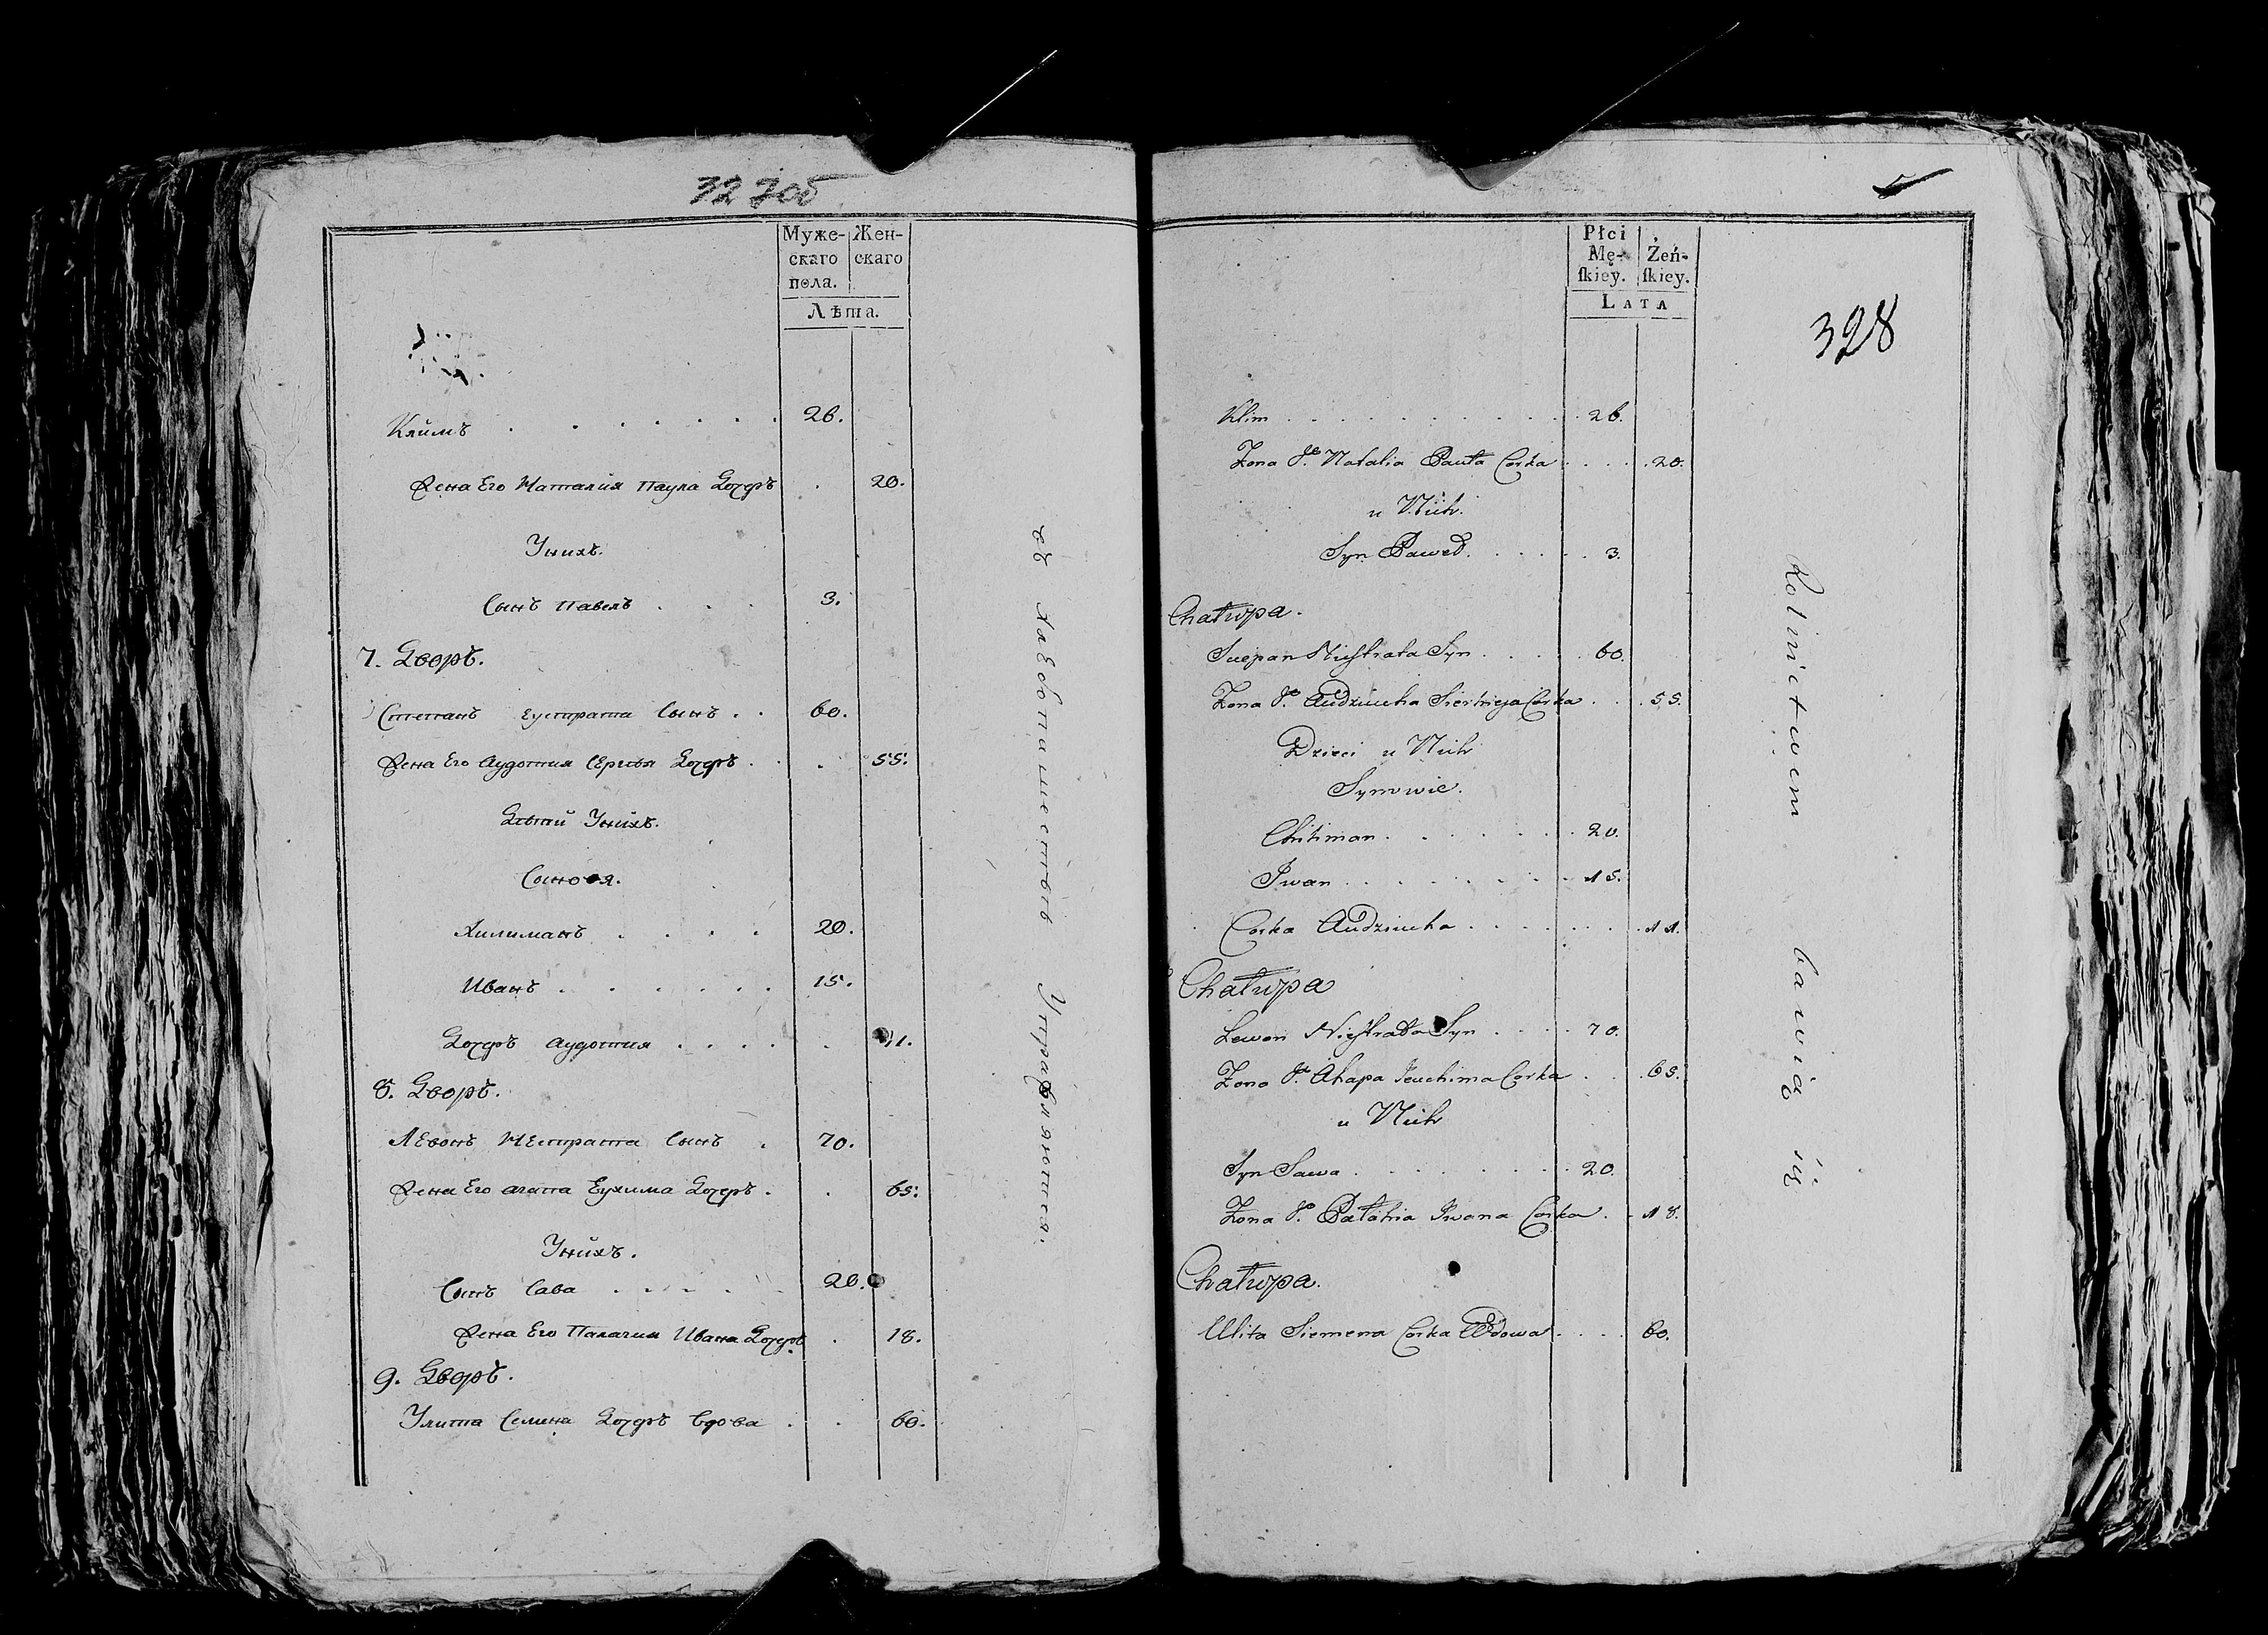 327об
Муже- Жен-
скаго скаго
пола.
Лѣта.
Климъ . . . . . . . 26.
Жена Его Наталия Паула Дочеръ . 20.
Унихъ.
Сынъ Павелъ . . . 3.
7. Дворъ.
Степанъ Еустрата Сынъ . . 60.
Жена Его Аудотия Сергѣя Дочеръ . . 55.
Дѣти Унихъ.
Сыновя.
Хилиманъ . . . . 20.
Иванъ . . . . . . 15.
Дочеръ Аудотия . . . . . 11.
8. Дворъ.
Левонъ Нестрата Сынъ . 70.
Жена Его агапа Еухима Дочеръ . . 65.
Унихъ.
Сынъ Сава . . . . . 20.
Жена Его Палагия Ивана Дочеръ . 18.
9. Дворъ.
Улита Семена Дочеръ вдова . . 60.
въ Хлебопашестве Упражняются.
Płci
Mę- Żeń-
ſkiey. ſkiey.
LATA
328
Klim . . . . . . . . . . 26.
Zona Jo Natalia Pauła Corka . . . . 20.
u Nich.
Syn Paweł . . . . . 3.
Chałupa.
Sciepan Niestrata Syn . . . . . 60.
Zona Jo Audziucha Sierhieja Corka . . . 55.
Dzieci u Nich
Synowie.
Chiliman . . . . . . . 20.
Iwan . . . . . . . . 15.
Corka Audziucha . . . . . . . 11.
Chałupa
Lewon Niestrata Syn . . . . 70.
Zona Jo Ahapa Jeuchima Corka . . . 65.
u Nich
Syn Sawa . . . . . . . . 20.
Zona Jo Pałahia Iwana Corka . . 18.
Chałupa.
Ulita Siemiena Corka Wdowa . . . . 60.
Rolnictwem bawią się